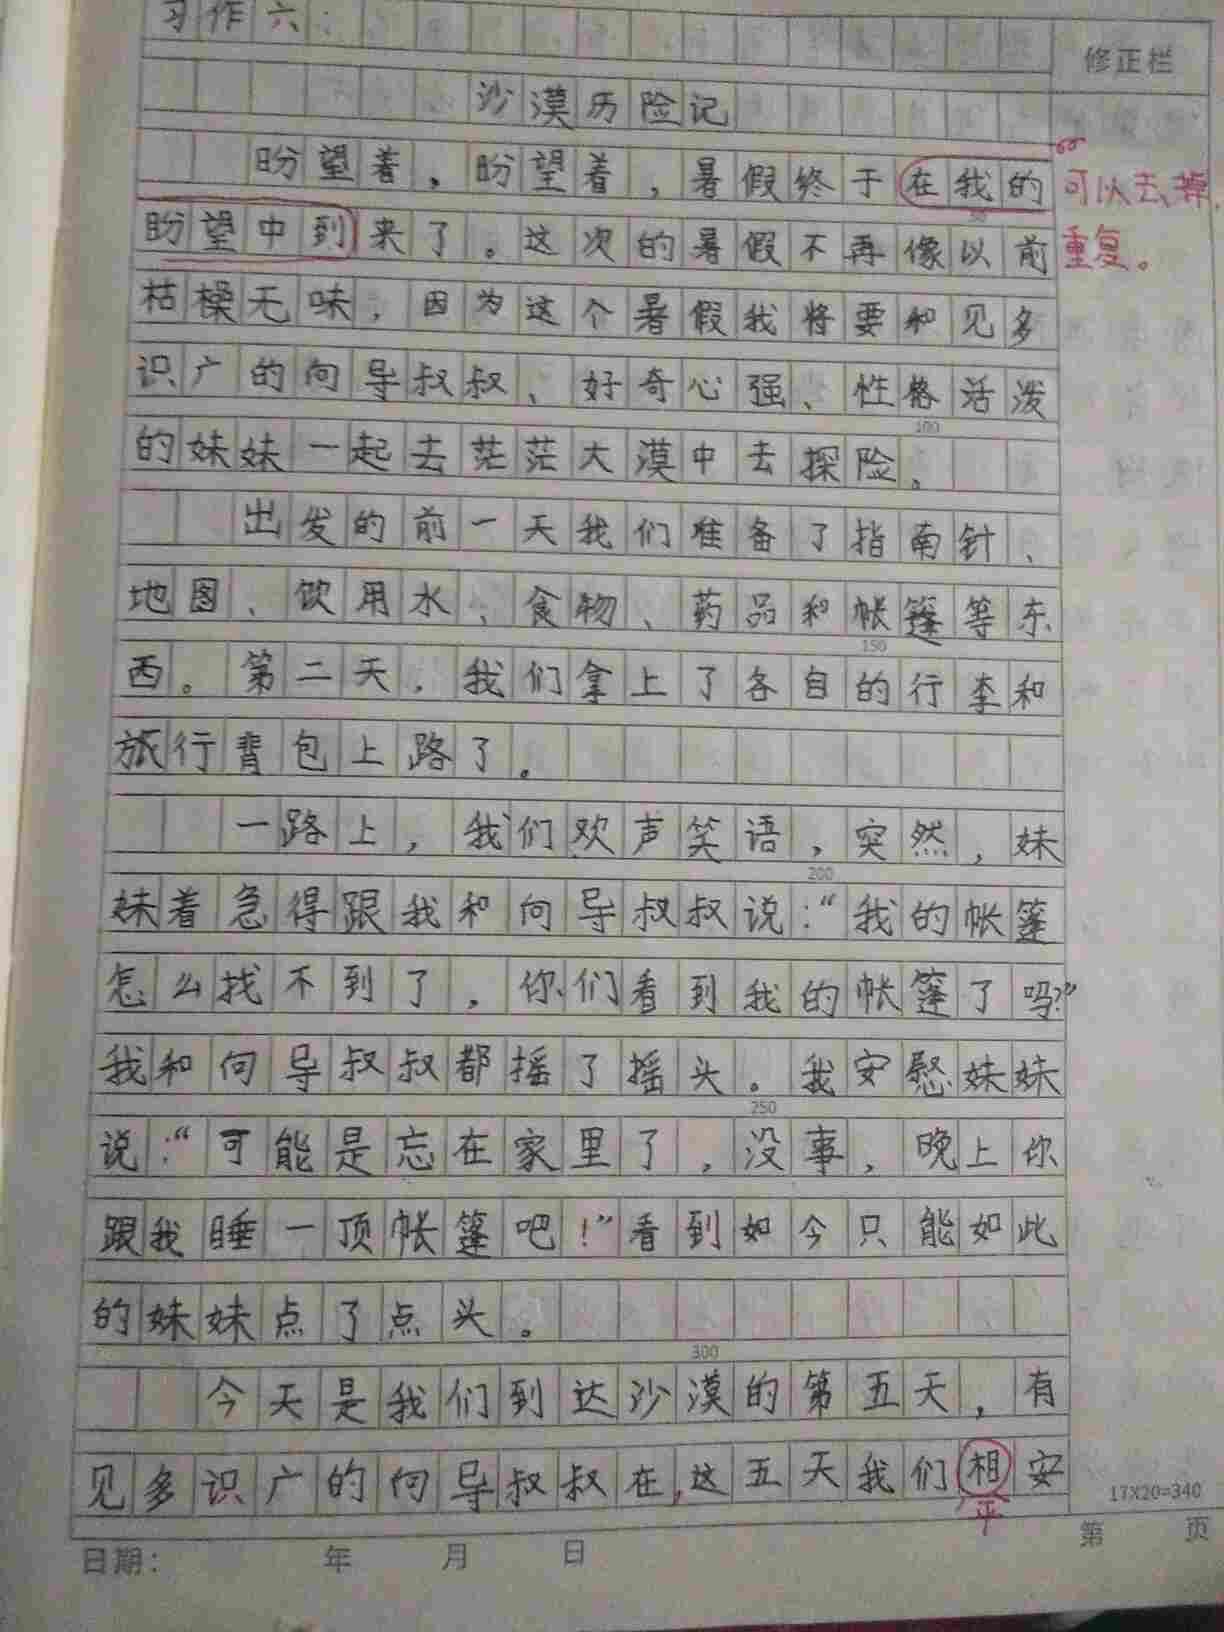 习作六:
修正栏
沙漠历险记
盼望着，盼望着，暑假终于在我的
可以去掉，
盼望中到来了。这次的暑假不再像以前
重复。
枯橾无味，因为这个暑假我将要和见多
识广的向导叔叔、好奇心强、性格活泼
100
的妹妹一起去茫茫大漠中去探险。
出发的前一天我们准备了指南针、
地图、饮用水、食物、药品和帐篷等东
150
西。第二天，我们拿上了各自的行李和
旅行背包上路了。
一路上，我们欢声笑语，突然，妹
200
妹着急得跟我和向导叔叔说:“我的帐篷
怎么找不到了，你们看到我的帐篷了吗?”
我和向导叔叔都摇了摇头。我安慰妹妹
250
说:“可能是忘在家里了，没事，晚上你
跟我睡一顶帐篷吧!”看到如今只能如此
的妹妹点了点头。
300
今天是我们到达沙漠的第五天，有
见多识广的向导叔叔在,这五天我们相安
平
17X20=340
日期: 年 月 日
第 页